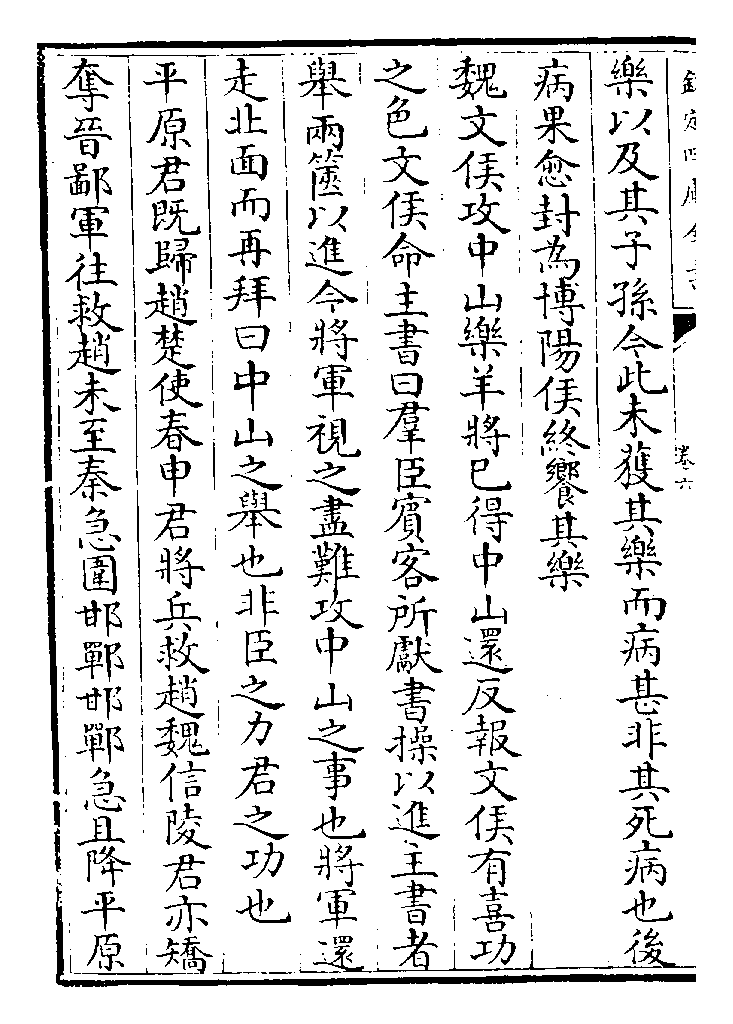 欽定四庫全書
卷六
樂以及其子孫今此未獲其樂而病甚非其死病也後
病果愈封為博陽侯終饗其樂
魏文侯攻中山樂羊將已得中山還反報文侯有喜功
之色文侯命主書曰羣臣賓客所獻書操以進主書者
舉兩篋以進令將軍視之盡難攻中山之事也將軍還
走北面而再拜曰中山之舉也非臣之力君之功也
平原君既歸趙楚使春申君將兵救趙魏信陵君亦矯
奪晉鄙軍往救趙未至秦急圍邯鄲邯鄲急且降平原